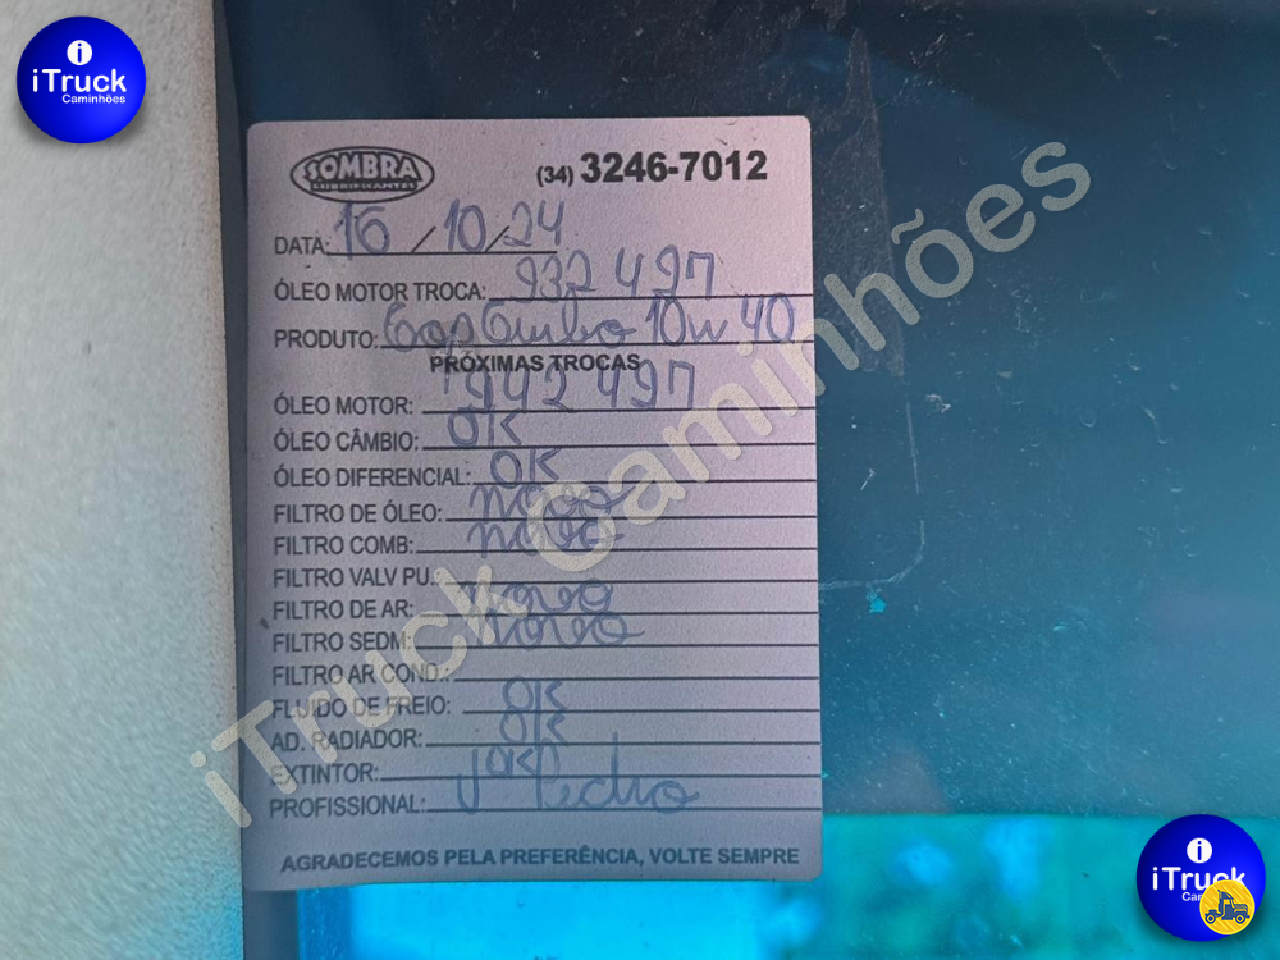 i
iTruck
Caminhões
SOMBRA
LUBRIFICANTES
(34) 3246-7012
DATA: 16/10/24
ÓLEO MOTOR TROCA: 932 497
PRODUTO: Top Turbo 10w40
PRÓXIMAS TROCAS
ÓLEO MOTOR: 942 497
ÓLEO CÂMBIO: OK
ÓLEO DIFERENCIAL: OK
FILTRO DE ÓLEO: novo
FILTRO COMB: novo
FILTRO VALV PU.:
FILTRO DE AR: novo
FILTRO SEDM: novo
FILTRO AR COND.:
FLUIDO DE FREIO: OK
AD. RADIADOR: OK
EXTINTOR: OK
PROFISSIONAL: Pedro
AGRADECEMOS PELA PREFERÊNCIA, VOLTE SEMPRE
iTruck Caminhões
i
iTruck